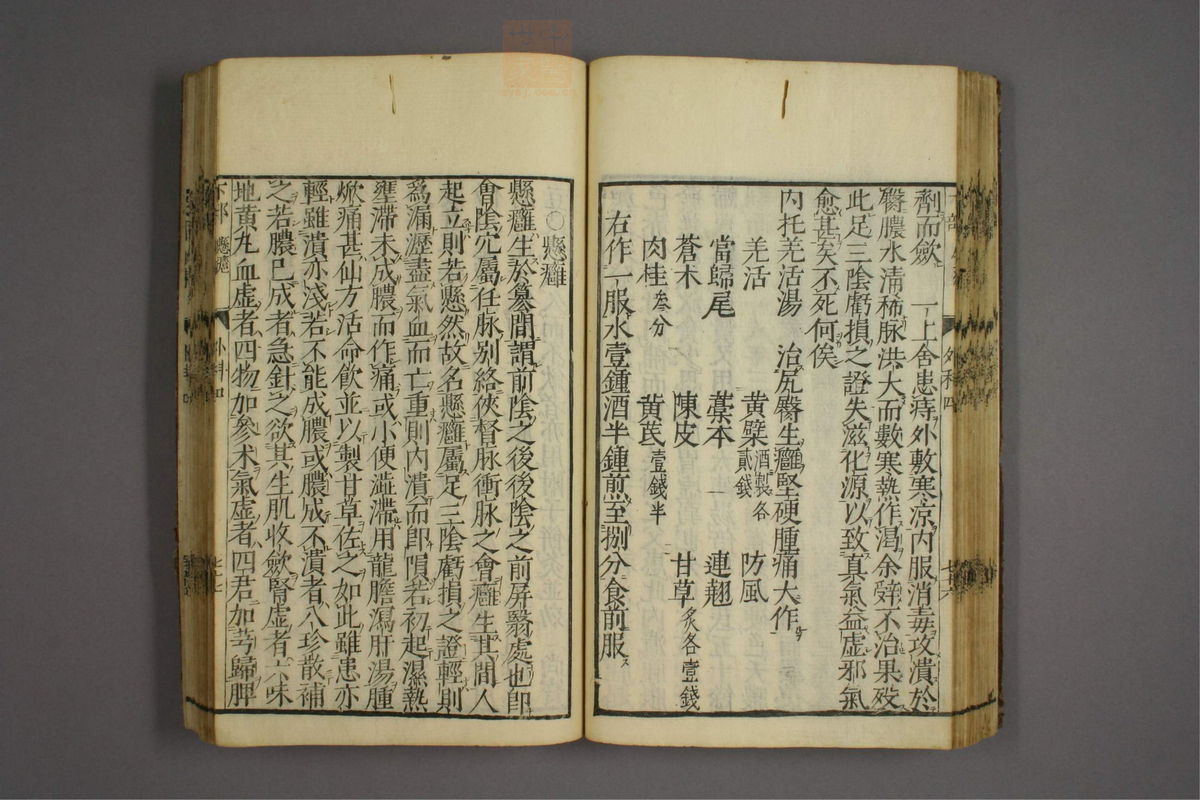 劑而歛　一上舍患痔外敷寒凉内服消毒攻潰於
臀膿水淸稀脉洪大而數寒熱作渴余辤不治果歿
此足三陰虧損之證失滋化源以致真氣益虛邪氣
愈甚矣不死何俟
内托羌活湯　治尻臀生癰堅硬腫痛大作
羌活　黃蘗酒製各貳錢　防風
當歸尾　藁本　連翹
蒼术　陳皮　甘草炙各壹錢
肉桂叁分　黃芪壹錢半
右作一服水壹鍾酒半鍾煎至捌分食前服
○懸癰
懸癰生於篡間謂前陰之後後陰之前屏翳處也卽
會陰穴屬任脉别絡俠督脉衝脉之會癰生其間人
起立則若懸然故名懸癰屬足三陰虧損之證輕則
爲漏瀝盡氣血而亡重則内潰而卽隕若初起濕熱
壅滯未成膿而作痛或小便澁滯用龍膽瀉肝湯腫
焮痛甚仙方活命飮並以製甘草佐之如此雖患亦
輕雖潰亦淺若不能成膿或膿成不潰者八珍散補
之若膿已成者急針之欲其生肌收歛腎虛者六味
地黃丸血虛者四物加參术氣虛者四君加芎歸脾
下部　懸癰
外科四
七十七